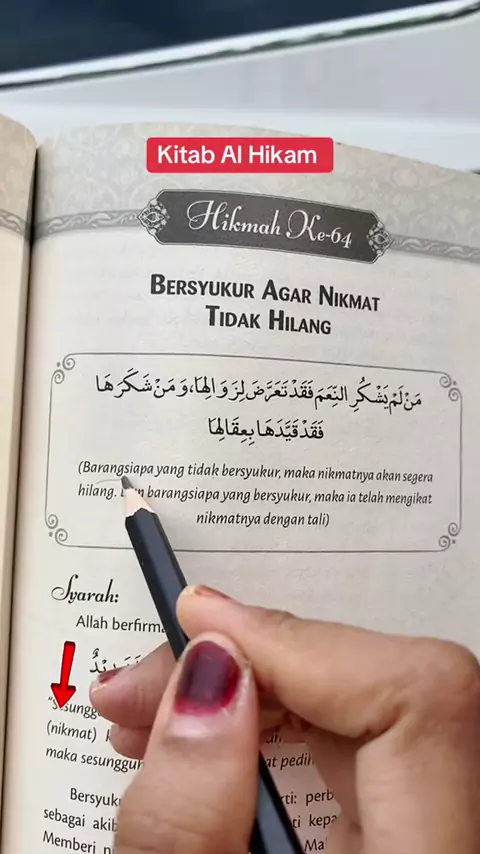 Kitab Al Hikam
Hikmah Ke-64
BERSYUKUR AGAR NIKMAT
TIDAK HILANG
مَنْ لَمْ يَشْكُرِ النِّعَمَ فَقَدْ تَعَرَّضَ لِزَوَالِهَا، وَمَنْ شَكَرَهَا
فَقَدْ قَيَّدَهَا بِعِقَالِهَا
(Barangsiapa yang tidak bersyukur, maka nikmatnya akan segera
hilang. barangsiapa yang bersyukur, maka ia telah mengikat
nikmatnya dengan tali)
Syarah:
Allah
(nikmat)
maka
Bersyuk
sebagai
Memberi